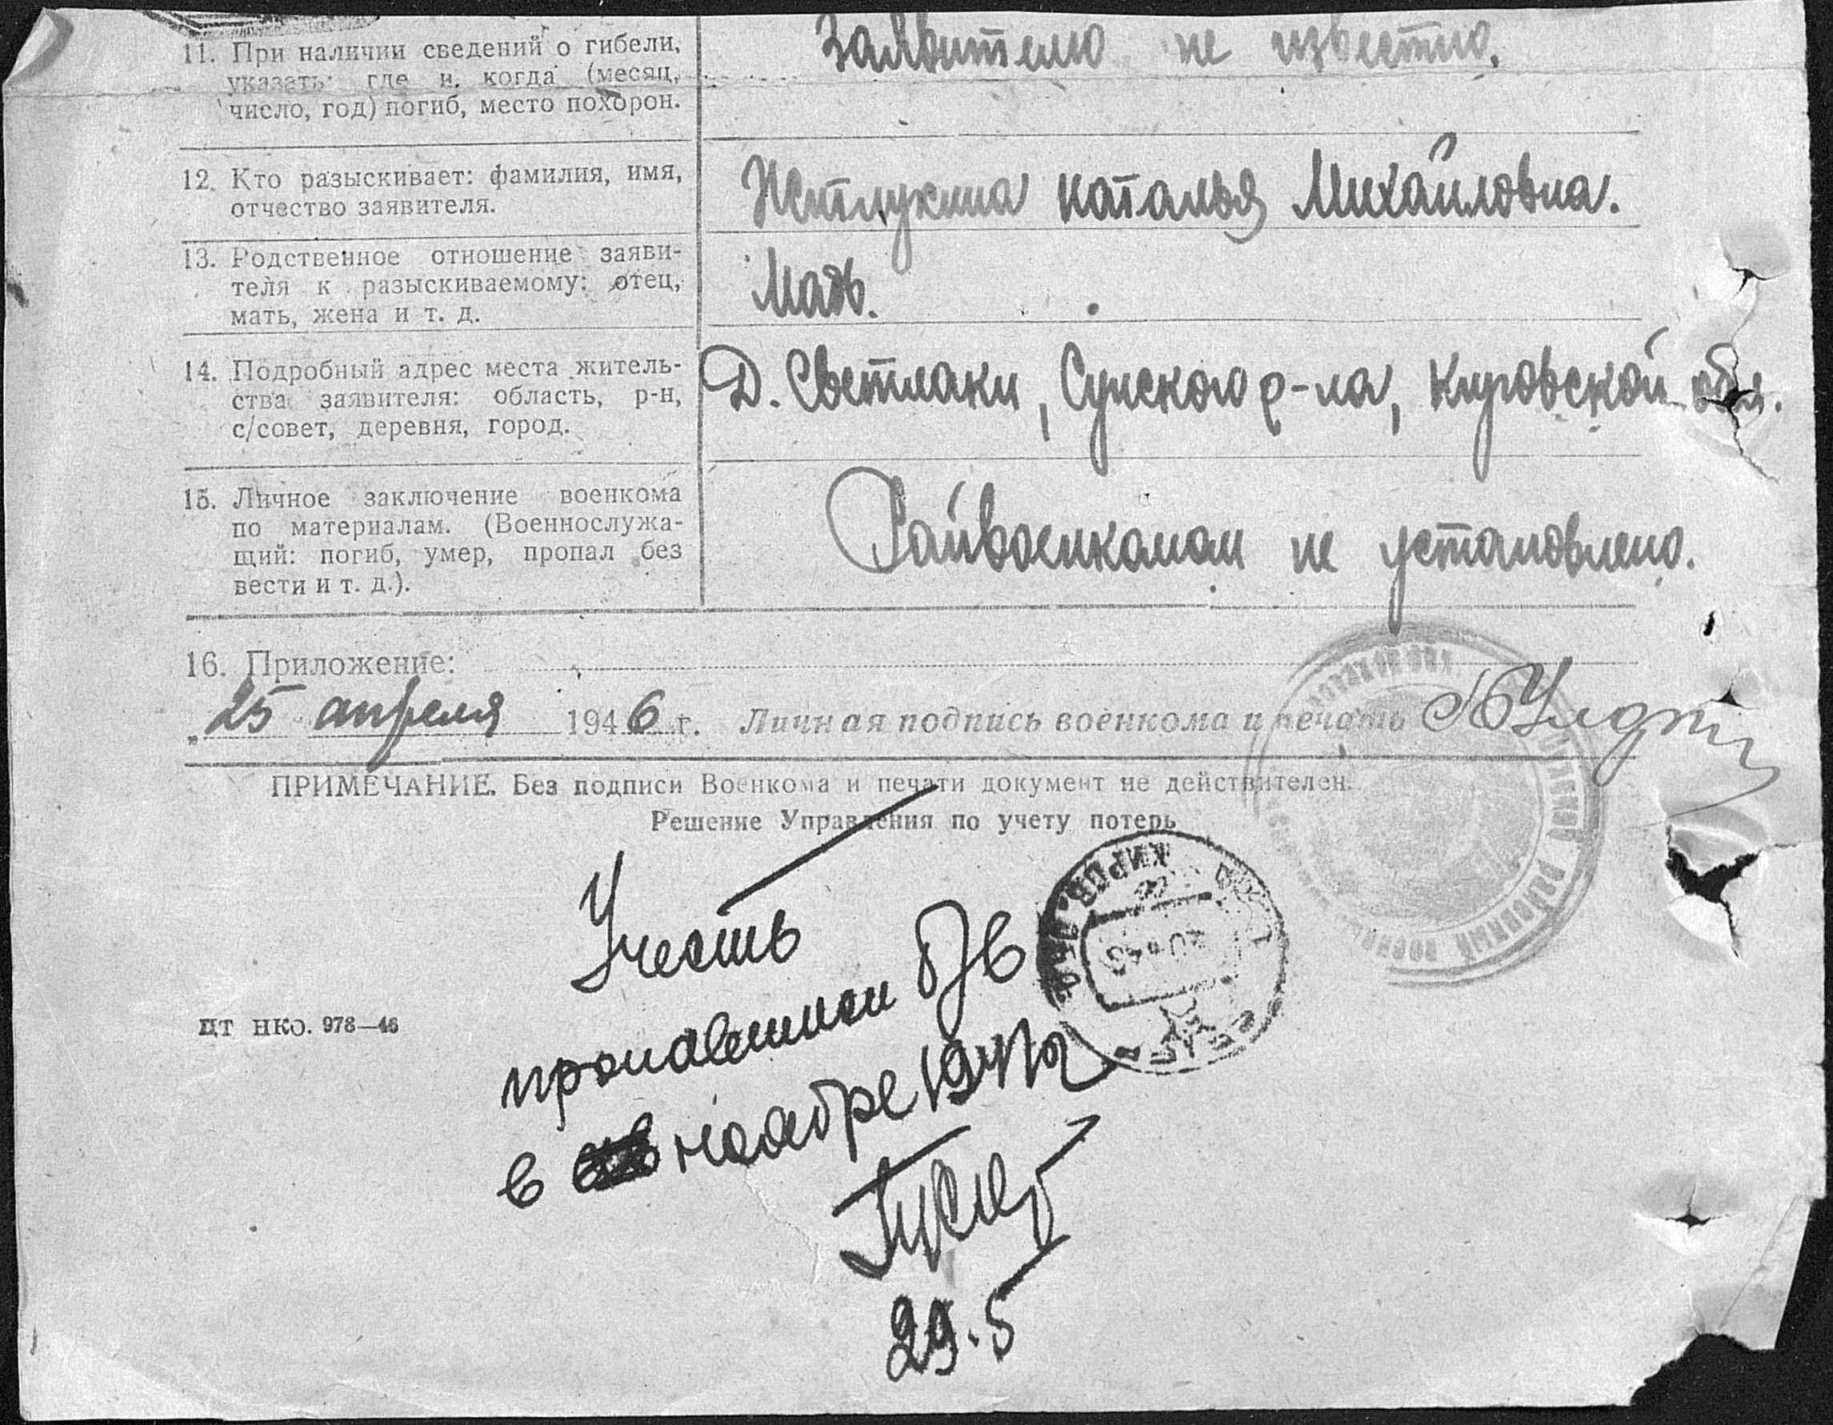 11. При наличии сведений о гибели,
указать где и когда (месяц,
число, год) погиб, место похорон.
Заявителю не известно.
12. Кто разыскивает: фамилия, имя,
отчество заявителя.
Наталья Михайловна.
13. Родственное отношение заяви-
теля к разыскиваемому: отец,
мать, жена и т. д.
Мать.
14. Подробный адрес места житель-
ства заявителя: область, р-н,
с/совет, деревня, город.
Д. Светлаки, Сунского р-на, Кировской обл.
15. Личное заключение военкома
по материалам. (Военнослужа-
щий: погиб, умер, пропал без
вести и т. д.).
Райвоенкомом не установлено.
16. Приложение:
„25 апреля 1946 г. Личная подпись военкома и печать
ПРИМЕЧАНИЕ. Без подписи Военкома и печати документ не действителен.
Решение Управления по учету потерь
Учесть
пропавшим б/в
в ноябре 1941 г
29.5
ЦТ НКО. 978—46
КИРОВ. ОБЛ.
РАЙОННЫЙ